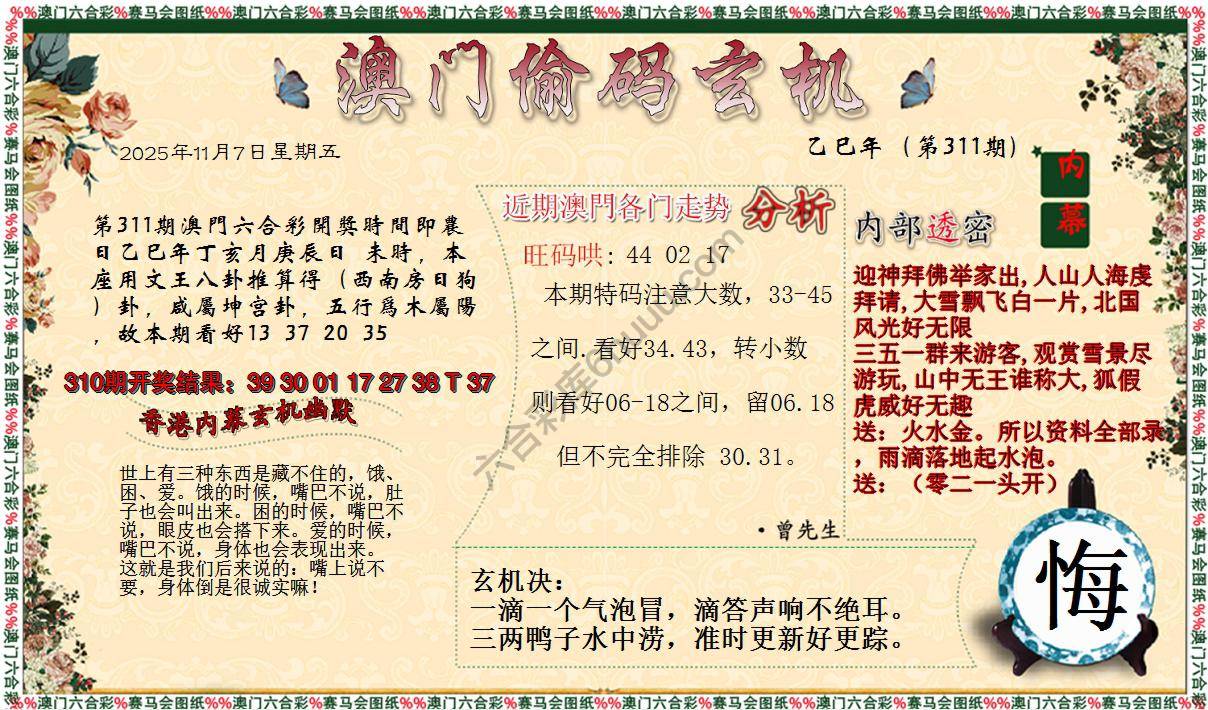 %%澳门六合彩%赛马会图纸%%澳门六合彩%赛马会图纸%%澳门六合彩%赛马会图纸%%澳门六合彩%赛马会图纸%%澳门六合彩%赛马会图纸%%澳门六合彩%赛马会图纸%%
澳门偷码玄机
2025年11月7日星期五
乙巳年（第311期）
内
幕
第311期澳門六合彩開獎時間即農
日乙巳年丁亥月庚辰日 未時，本
座用文王八卦推算得（西南房日狗
）卦，咸屬坤宫卦，五行爲木屬陽
，故本期看好13 37 20 35
310期开奖结果：39 30 01 17 27 38 T 37
香港内幕玄机幽默
世上有三种东西是藏不住的，饿、
困、爱。饿的时候，嘴巴不说，肚
子也会叫出来。困的时候，嘴巴不
说，眼皮也会搭下来。爱的时候，
嘴巴不说，身体也会表现出来。
这就是我们后来说的：嘴上说不
要，身体倒是很诚实嘛！
近期澳門各门走势 分析
旺码哄: 44 02 17
本期特码注意大数，33-45
之间.看好34.43，转小数
则看好06-18之间，留06.18
但不完全排除 30.31。
·曾先生
内部透密
迎神拜佛举家出,人山人海虔
拜请,大雪飘飞白一片,北国
风光好无限
三五一群来游客,观赏雪景尽
游玩,山中无王谁称大,狐假
虎威好无趣
送：火水金。所以资料全部录
，雨滴落地起水泡。
送：（零二一头开）
玄机决：
一滴一个气泡冒，滴答声响不绝耳。
三两鸭子水中涝，准时更新好更踪。
悔
%%澳门六合彩%赛马会图纸%%澳门六合彩%赛马会图纸%%澳门六合彩%赛马会图纸%%澳门六合彩%赛马会图纸%%澳门六合彩%赛马会图纸%%澳门六合彩%赛马会图纸%%